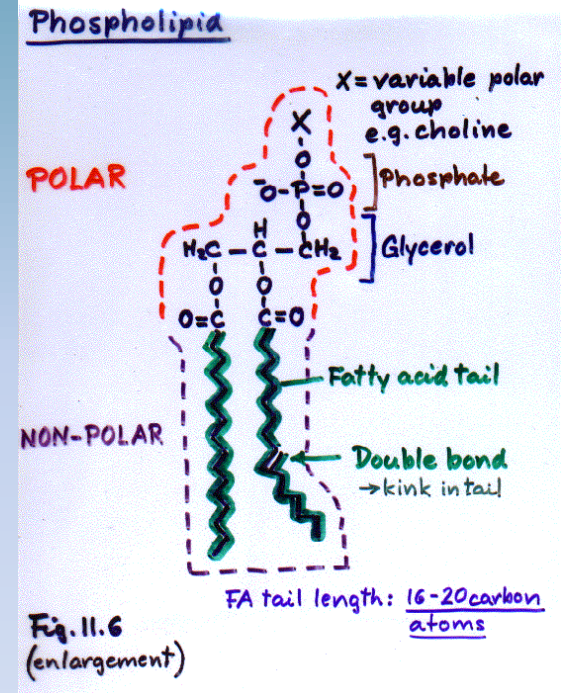 Phospholipid
X = variable polar
group
e.g. choline
X
O
POLAR
⁻O-P=O
Phosphate
O
H
H₂C - C - CH₂
Glycerol
O O
O=C C=O
Fatty acid tail
NON-POLAR
Double bond
→kink in tail
FA tail length: 16-20 carbon
atoms
Fig. 11.6
(enlargement)